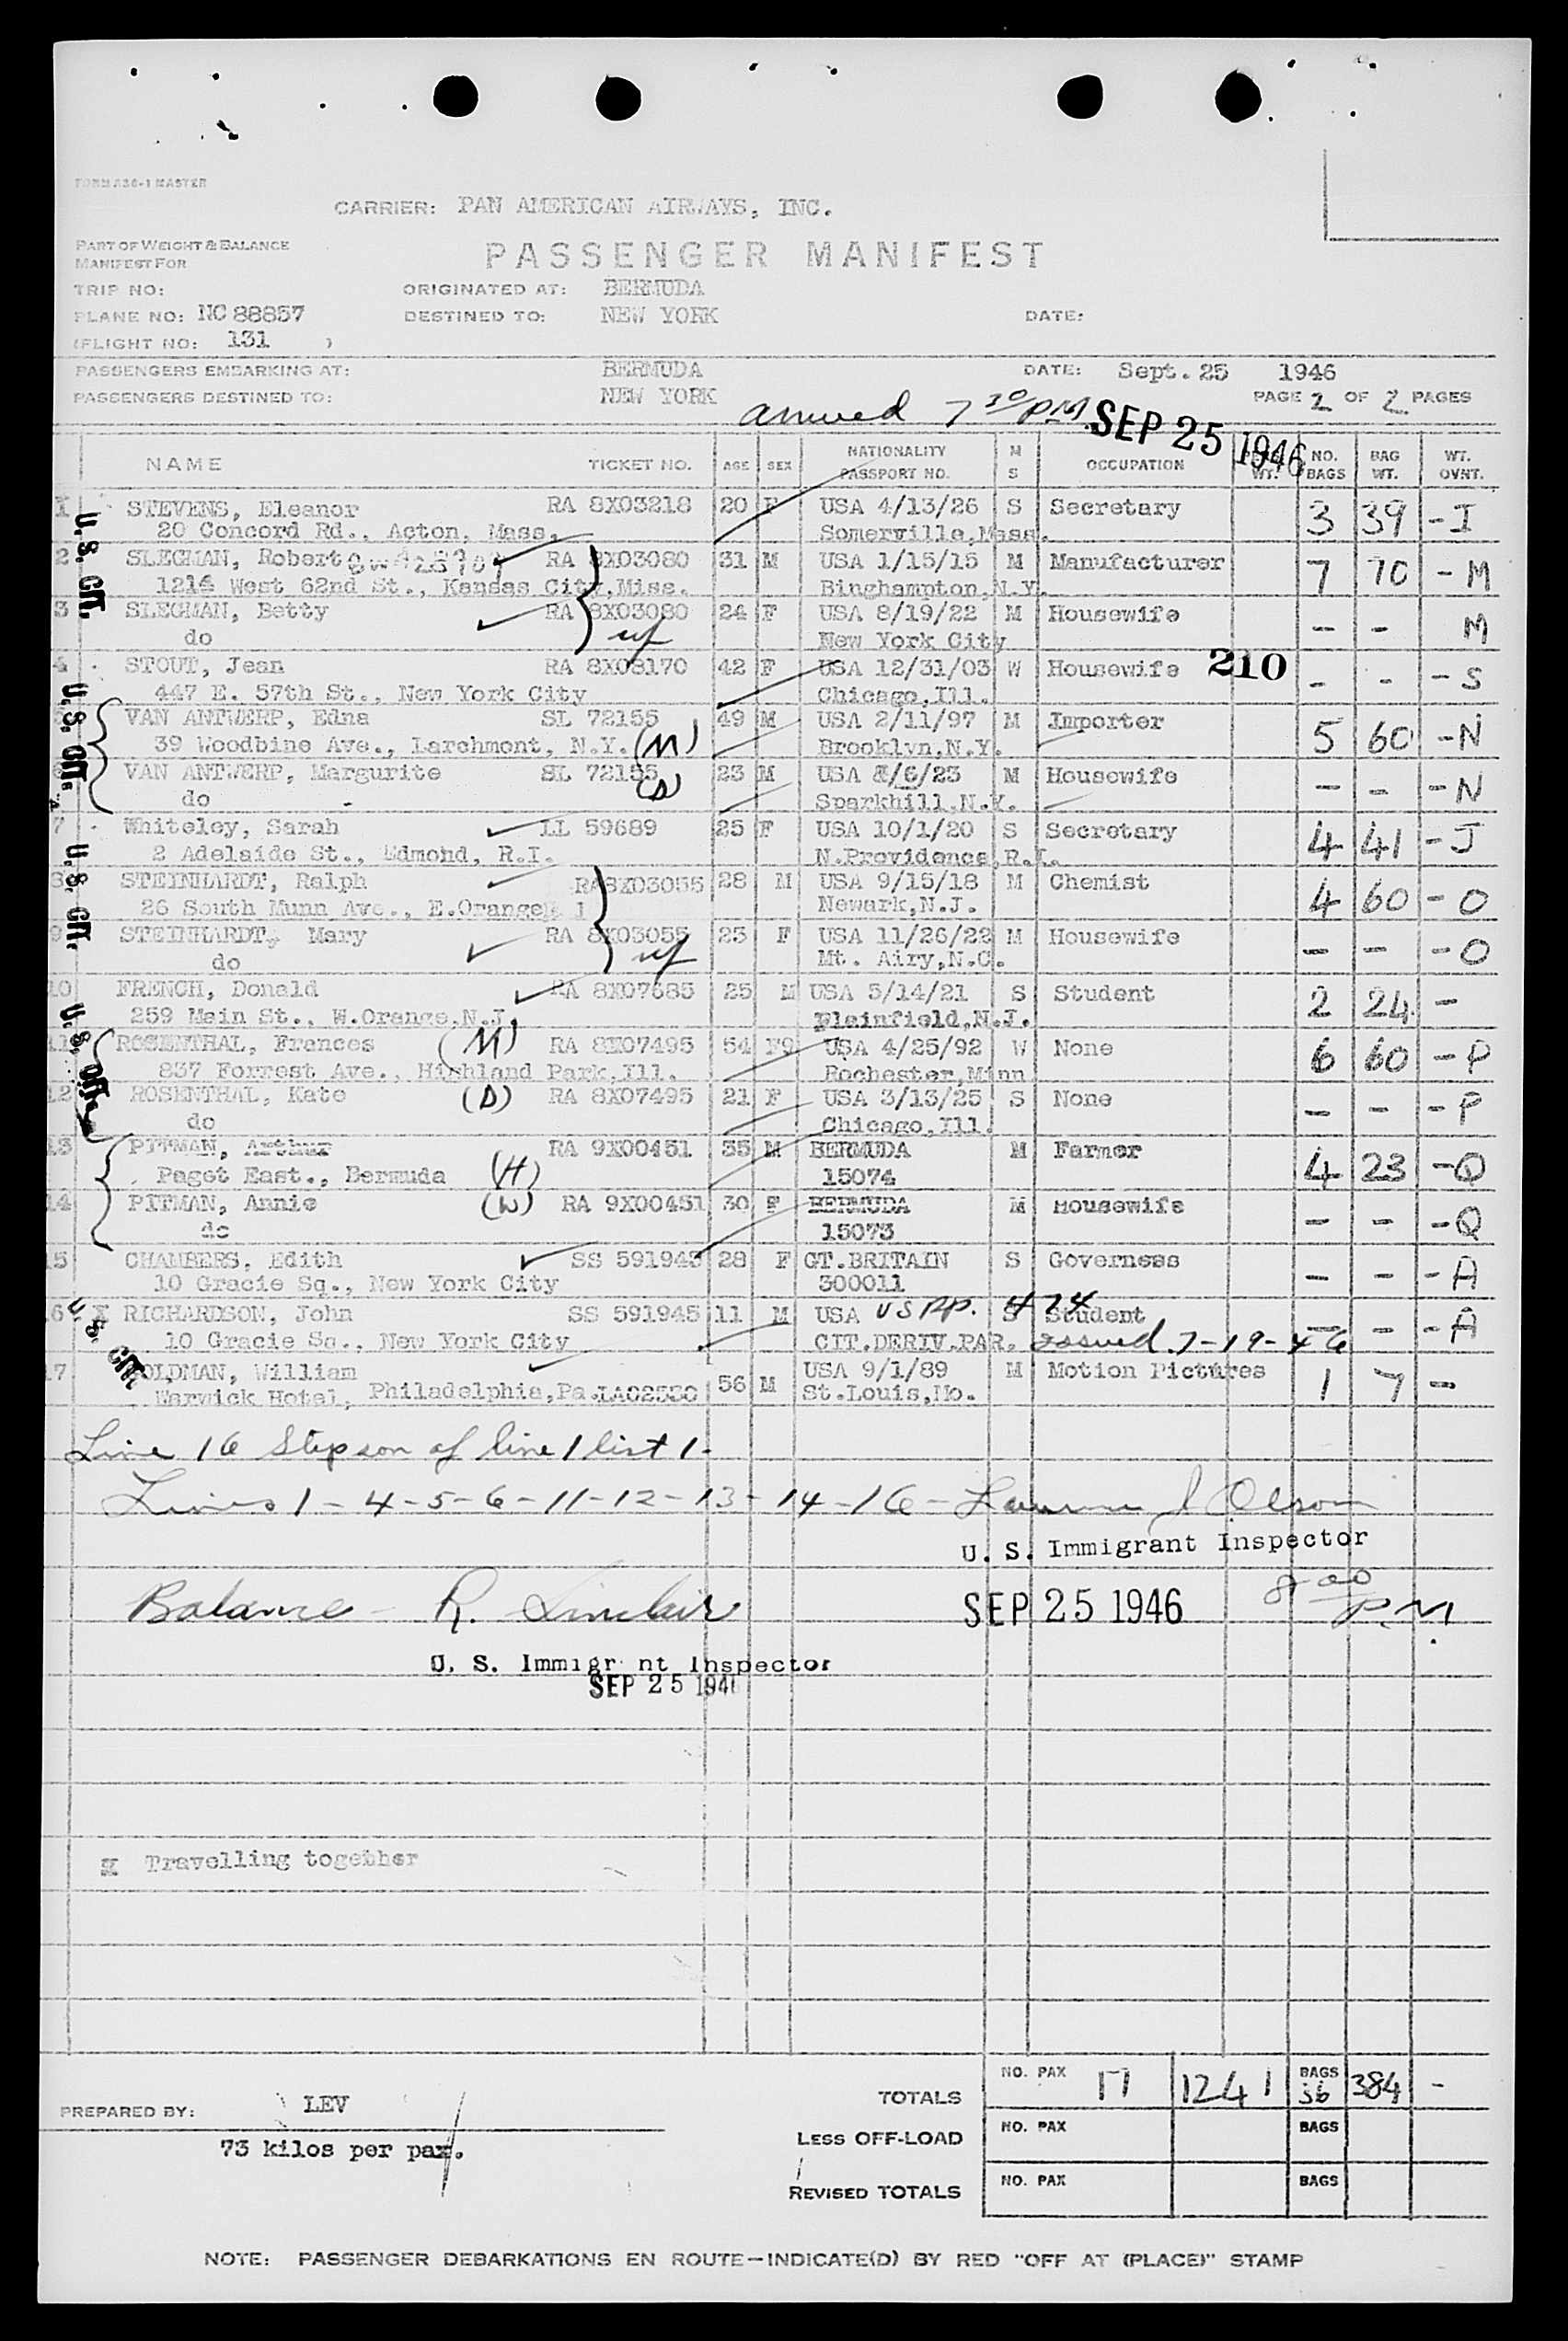 FORM A36-1 MASTER
CARRIER: PAN AMERICAN AIRWAYS, INC.
PART OF WEIGHT & BALANCE
MANIFEST FOR
PASSENGER MANIFEST
TRIP NO: ORIGINATED AT: BERMUDA
PLANE NO: NC 88857 DESTINED TO: NEW YORK DATE:
(FLIGHT NO: 131 )
PASSENGERS EMBARKING AT: BERMUDA DATE: Sept. 25 1946
PASSENGERS DESTINED TO: NEW YORK PAGE 2 OF 2 PAGES
arrived 7 30 PM SEP 25 1946
NAME TICKET NO. AGE SEX NATIONALITY PASSPORT NO. M S OCCUPATION WT. NO. BAGS BAG WT. WT. OVNT.
1 STEVENS, Eleanor RA 8X03218 20 F USA 4/13/26 S Secretary 3 39 - I
20 Concord Rd., Acton, Mass. Somerville,Mass.
2 SLEGMAN, Robert RA 8X03080 31 M USA 1/15/15 M Manufacturer 7 70 - M
1214 West 62nd St., Kansas City,Miss. Binghampton,N.Y.
3 SLEGMAN, Betty RA 8X03080 24 F USA 8/19/22 M Housewife - - M
do wf New York City
4 STOUT, Jean RA 8X08170 42 F USA 12/31/03 W Housewife 210 - - - S
447 E. 57th St., New York City Chicago,Ill.
5 VAN ANTWERP, Edna SL 72155 49 M USA 2/11/97 M Importer 5 60 - N
39 Woodbine Ave., Larchmont, N.Y. (M) Brooklyn,N.Y.
6 VAN ANTWERP, Margurite SL 72155 23 M USA 8/6/23 M Housewife - - - N
do (D) Sparkhill,N.Y.
7 Whiteley, Sarah LL 59689 25 F USA 10/1/20 S Secretary 4 41 - J
2 Adelaide St., Edmond, R.I. N.Providence,R.I.
8 STEINHARDT, Ralph RA8X03055 28 M USA 9/15/18 M Chemist 4 60 - O
26 South Munn Ave., E.Orange Newark,N.J.
9 STEINHARDT, Mary RA 8X03055 23 F USA 11/26/22 M Housewife - - - O
do wf Mt. Airy,N.C.
10 FRENCH, Donald RA 8X07685 25 M USA 5/14/21 S Student 2 24 -
259 Main St., W.Orange,N.J. Plainfield,N.J.
11 ROSENTHAL, Frances (M) RA 8X07495 54 F9 USA 4/25/92 W None 6 60 - P
837 Forrest Ave., Highland Park,Ill. Rochester,Minn
12 ROSENTHAL, Kate (D) RA 8X07495 21 F USA 3/13/25 S None - - - P
do Chicago,Ill.
13 PITMAN, Arthur RA 9X00451 35 M BERMUDA M Farmer 4 23 - Q
Paget East., Bermuda (H) 15074
14 PITMAN, Annie (W) RA 9X00451 30 F BERMUDA M Housewife - - - Q
do 15073
15 CHAMBERS, Edith SS 591945 28 F GT.BRITAIN S Governess - - - A
10 Gracie Sq., New York City 300011
16 X RICHARDSON, John SS 591945 11 M USA US PP. 474 S Student - - - A
10 Gracie Sq., New York City CIT.DERIV.PAR. issued 7-19-46
17 GOLDMAN, William 56 M USA 9/1/89 M Motion Pictures 1 7 -
Warwick Hotel, Philadelphia,Pa. IA02530 St.Louis,Mo.
U.S. CIT.
U.S. CIT.
U.S. CIT.
U.S. CIT.
U.S. CIT.
Line 16 Stepson of line 1 list 1-
Lines 1-4-5-6-11-12-13-14-16- Olson
U. S. Immigrant Inspector
Balance - R. Sinclair SEP 25 1946 8 00 P.M.
U. S. Immigr nt Inspector
SEP 25 1946
X Travelling together
TOTALS NO. PAX 17 1241 BAGS 36 384 -
PREPARED BY: LEV
LESS OFF-LOAD NO. PAX BAGS
73 kilos per pax.
REVISED TOTALS NO. PAX BAGS
NOTE: PASSENGER DEBARKATIONS EN ROUTE-INDICATE(D) BY RED "OFF AT (PLACE)" STAMP